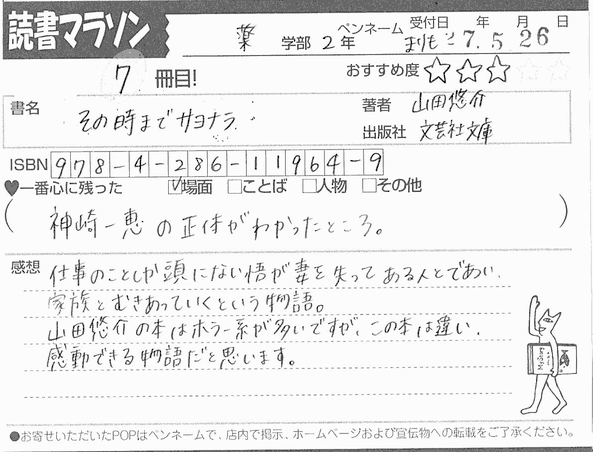 読書マラソン
薬 学部 2年 ペンネーム まりも 受付日 27年 5月 26日
7 冊目! おすすめ度 ☆☆☆
書名 その時までサヨナラ
著者 山田悠介
出版社 文芸社文庫
ISBN 978-4-286-11964-9
♥一番心に残った ☑場面 □ことば □人物 □その他
(神崎一恵の正体がわかったところ。)
感想 仕事のことしか頭にない悟が妻を失ってある人とであい、
家族とむきあっていくという物語。
山田悠介の本はホラー系が多いですが、この本は違い、
感動できる物語だと思います。
●お寄せいただいたPOPはペンネームで、店内で掲示、ホームページおよび宣伝物への転載をご了承ください。